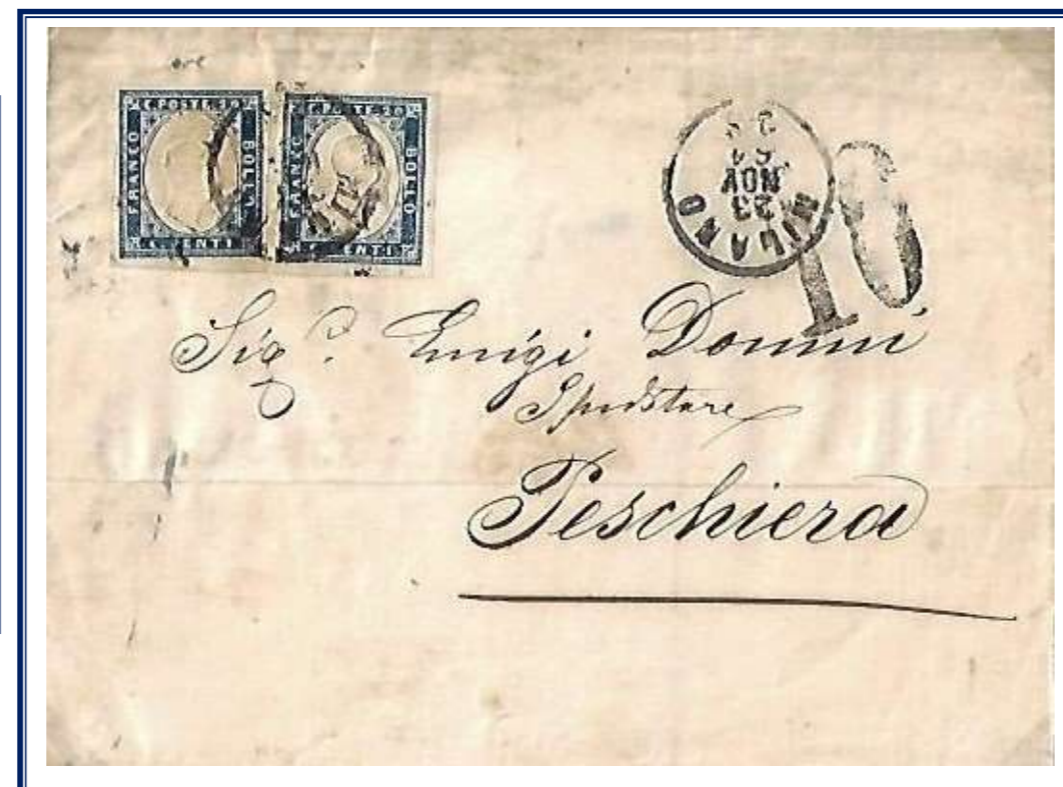 C. POSTE. 20
FRANCO
BOLLO
C. VENTI
C. POSTE. 20
FRANCO
BOLLO
C. VENTI
MILANO
23
NOV
10
Sig.r Luigi Donini
Peschiera